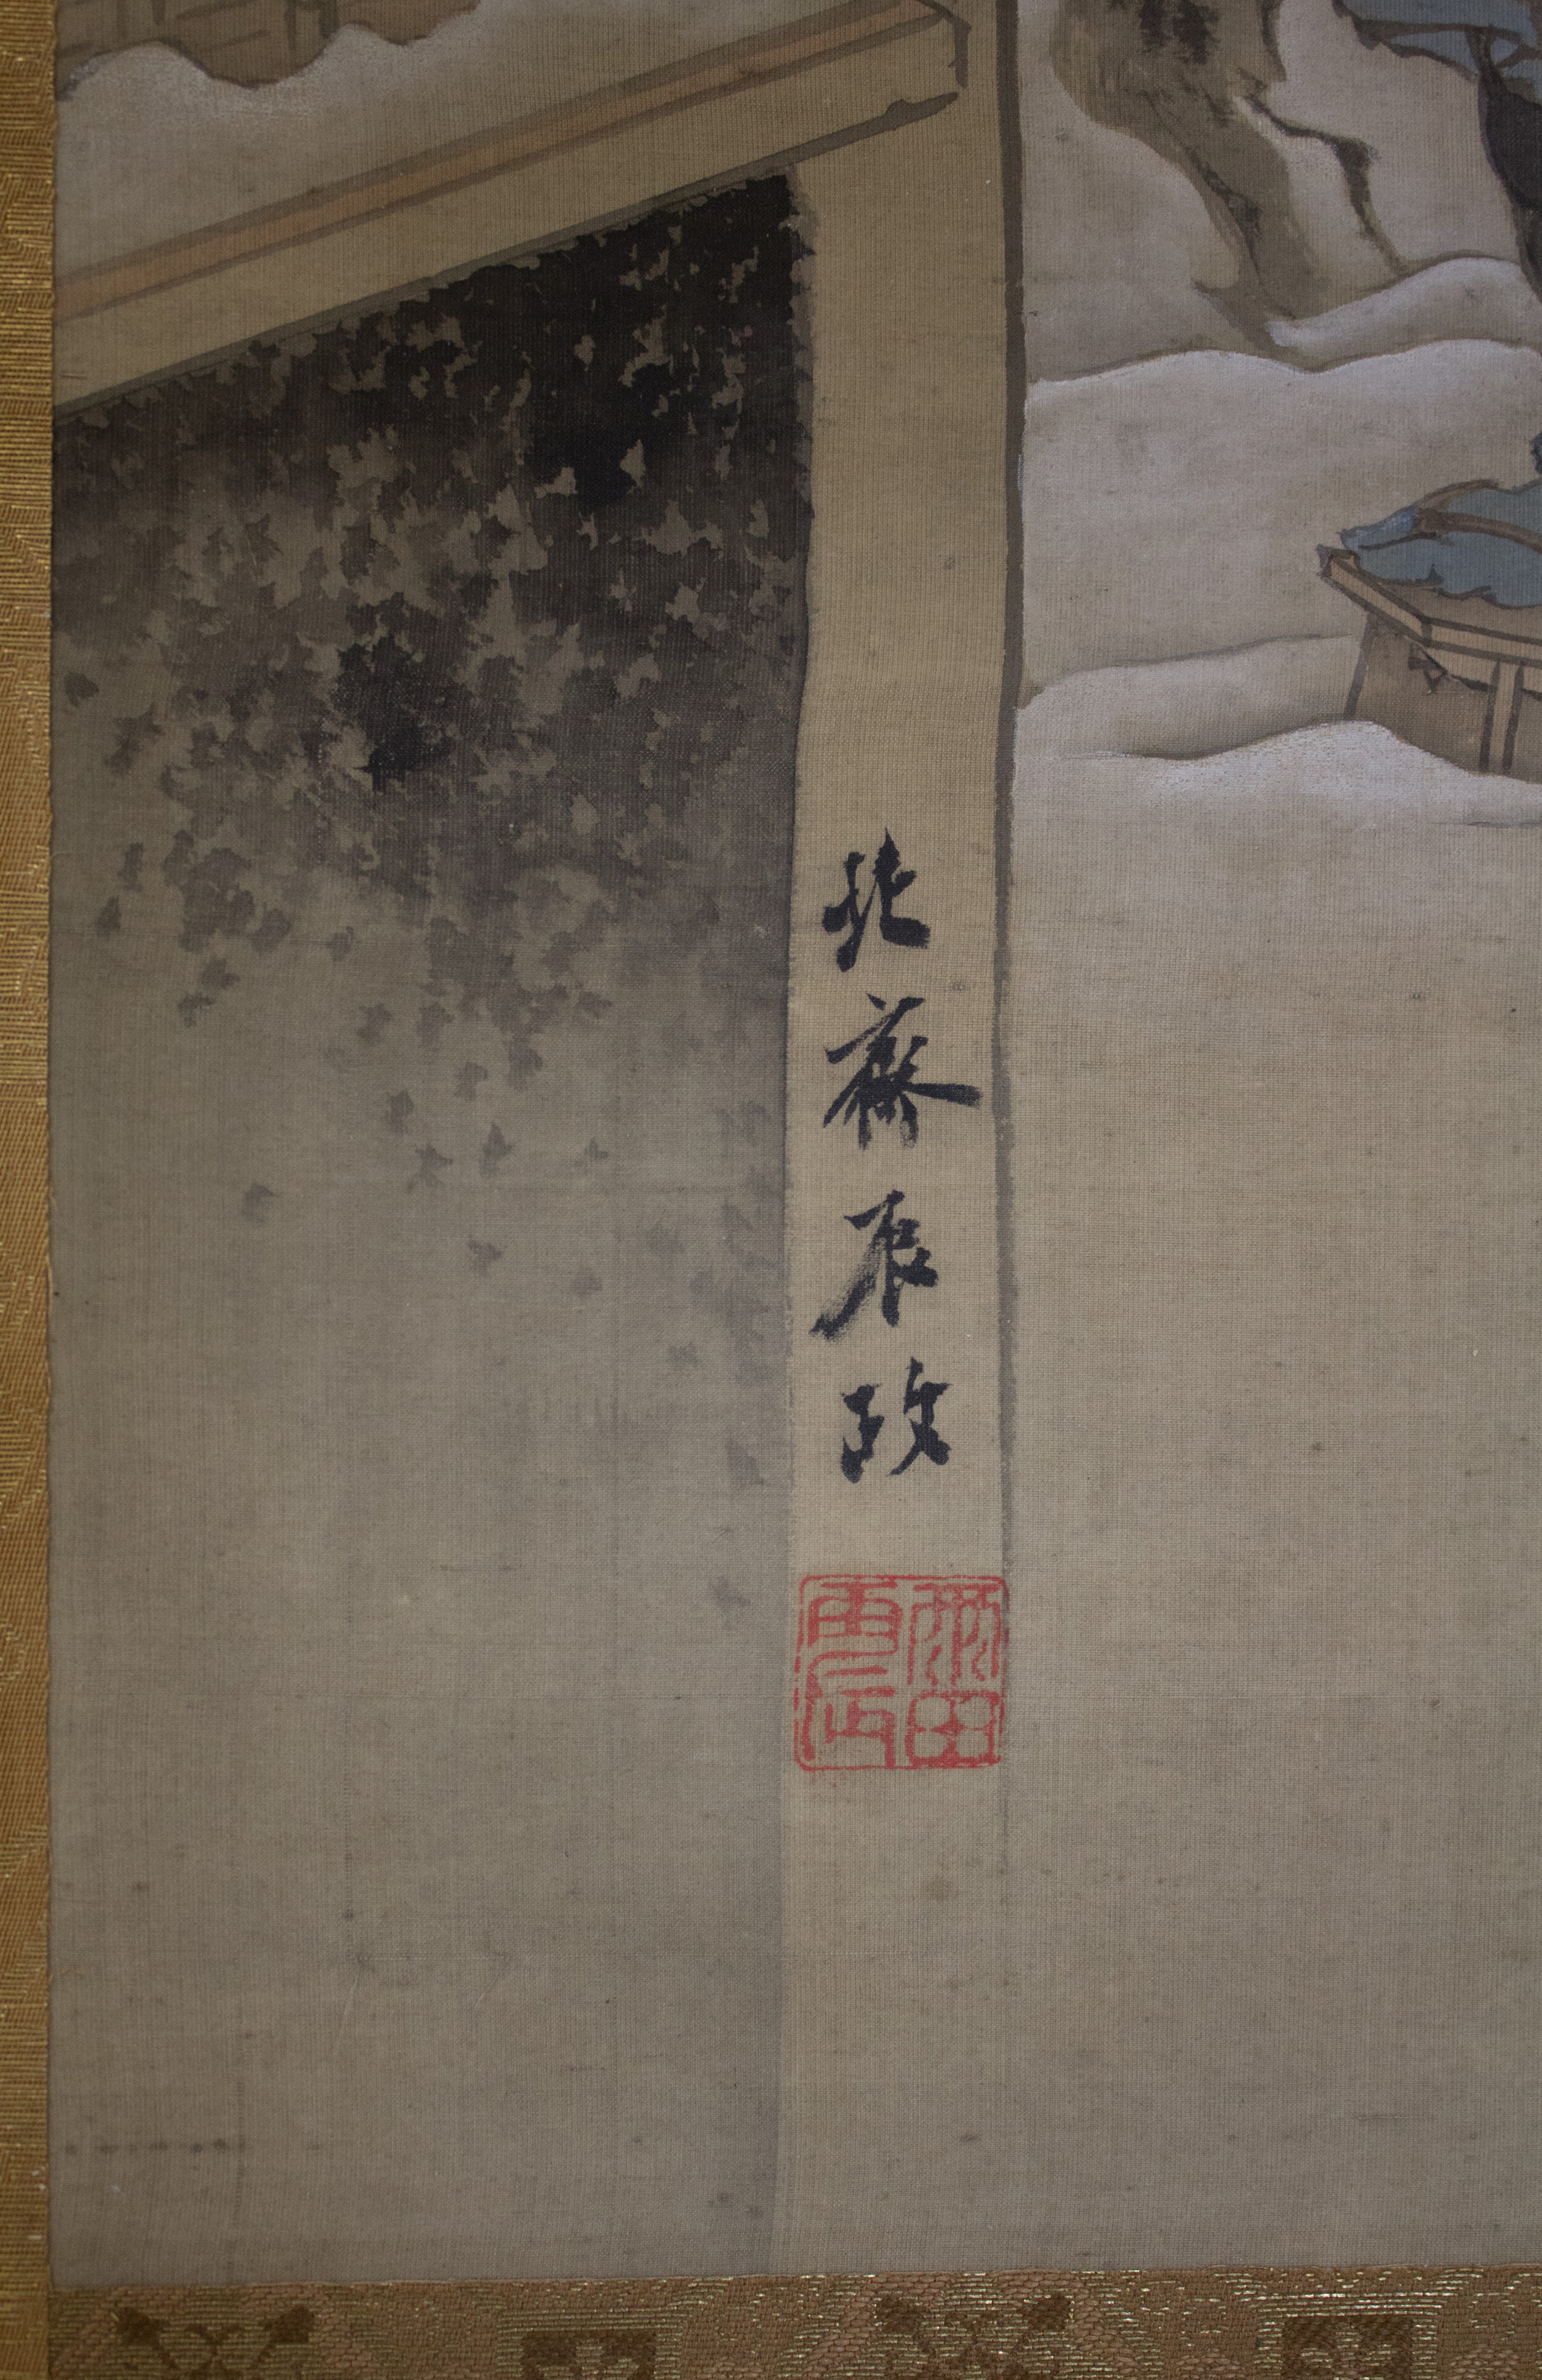 北齋辰政